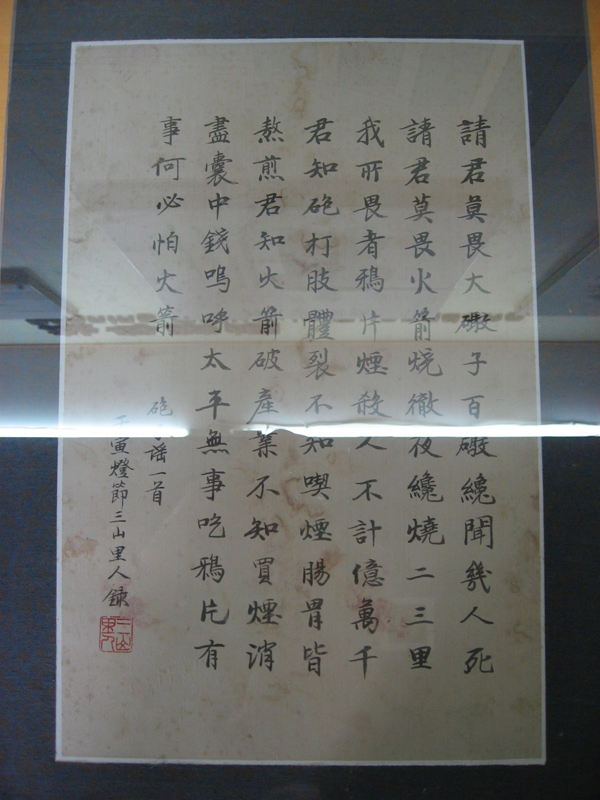 請君莫畏大礮子百礮纔聞幾人死
請君莫畏火箭烧徹夜纔燒二三里
我所畏者鴉片煙殺人不計億萬千
君知砲打肢體裂不知喫煙腸胃皆
熬煎君知火箭破產業不知買煙消
盡囊中錢嗚呼太平無事吃鴉片有
事何必怕火箭
砲子謠一首
壬寅燈節三山里人錄